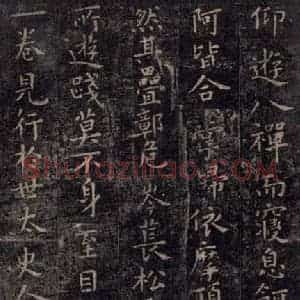 仰遊八禪而寢息
阿皆合掌歸依摩頂
然其疊鄣危岑長松
所遊踐莫不身至目
一卷見行於世太史令
Shufaziliao.COM